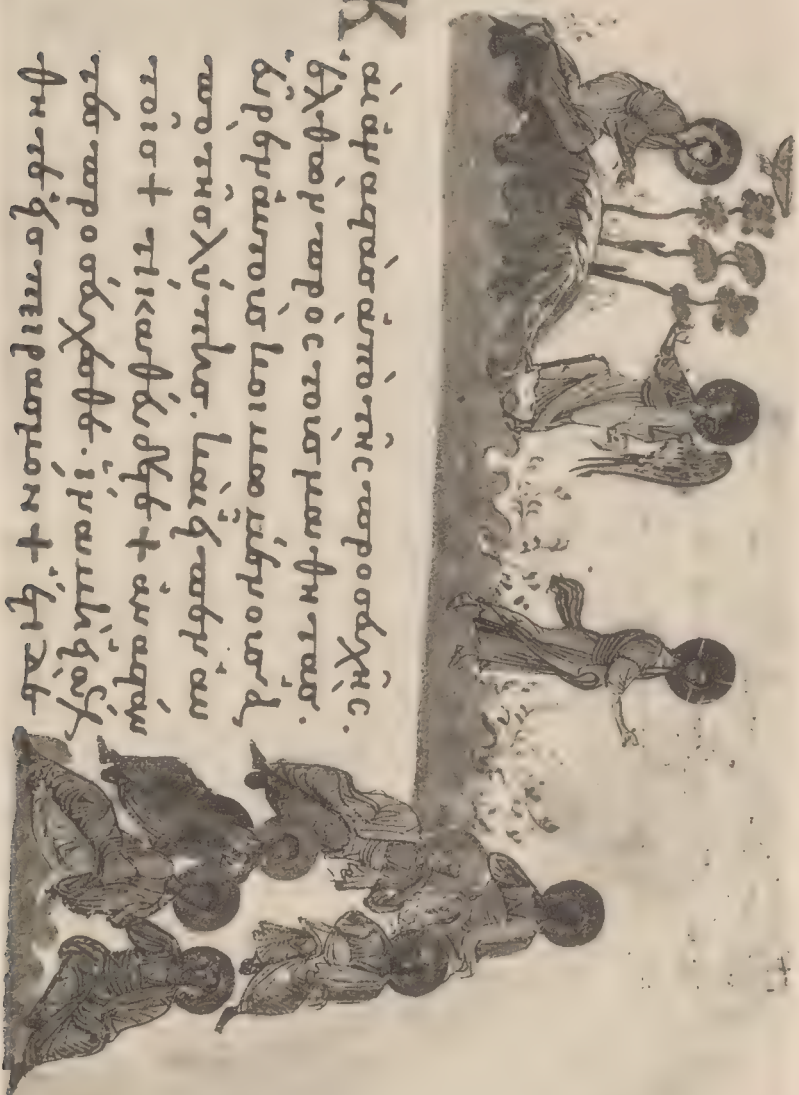 Καὶ ἀναστὰς ἀπὸ τῆς προσευχῆς.
ἐλθὼν πρὸς τοὺς μαθητάς.
εὗρεν αὐτοὺς κοιμωμένους
ἀπὸ τῆς λύπης. καὶ εἶπεν αὐ
τοῖς + τί καθεύδετε + ἀναστάν
τες προσεύχεσθε. ἵνα μὴ εἰσέλ
θητε εἰς πειρασμόν + ἔτι δὲ